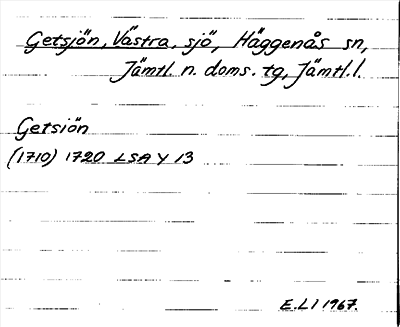 Getsjön, Västra, sjö, Häggenås sn,
Jämtl. n. doms. tg, Jämtl. l.
Getsiön
(1710) 1720 LSA Y 13
E.L I 1967.